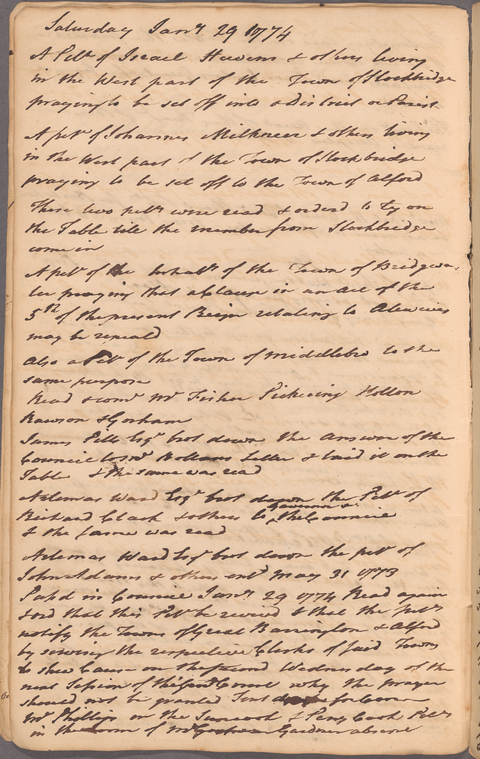 Saturday Jany. 29 1774
A Petn. of Israel & others living
in the West part of the Town of Stockbridge
praying to be set off into a District or Parish
A petn. of Johannes & others living
in the West part of the Town of Stockbridge
praying to be set off to the Town of Alford
These two petns. were read & ordered to ly on
the Table till the member from Stockbridge
come in
A petn. of the Inhabts. of the Town of Bridgwa-
ter praying that a Clause in an act of the
5th of the present Reign relating to Alewives
may be repeald
Also a Petn. of the Town of Middlebro to the
same purpose
Read & comd. Mr. Fisher Pickering Holton
Rawson & Gorham
James Pitts Esqr. brot down the Answer of the
Council to Letter & laid it on the
Table & the same was read
Artemas Ward Esqr. brot down the Petn. of
Richard Clark & others to the Governor & Council
& the same was read
Artemas Ward Esqr. brot down the petn. of
John Adams & others entd. May 31 1773
Pass'd in Council Jany. 29 1774 Read again
& ord that this Petn. be revived & that the petrs.
notify the Towns of Great Barrington & Alford
by serving the respective Clerks of said Towns
to shew Cause on the second Wednesday of the
next Session of the Genl. Court why the prayer
should not be granted
Mr. Phillips on the Suncook & Penny Cook Petns.
in the room of Mr. Gardner absent